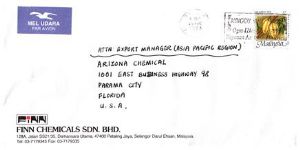 MEL UDARA
PAR AVION
Malaysia
ATTN EXPORT MANAGER (ASIA PACIFIC REGION)
ARIZONA CHEMICAL
1001 EAST BUSINESS HIGHWAY 98
PANAMA CITY
FLORIDA
U.S.A.
FINN
FINN CHEMICALS SDN. BHD.
128A, Jalan SS21/35, Damansara Utama, 47400 Petaling Jaya, Selangor Darul Ehsan, Malaysia.
Tel: 03-7179343 Fax: 03-7179335